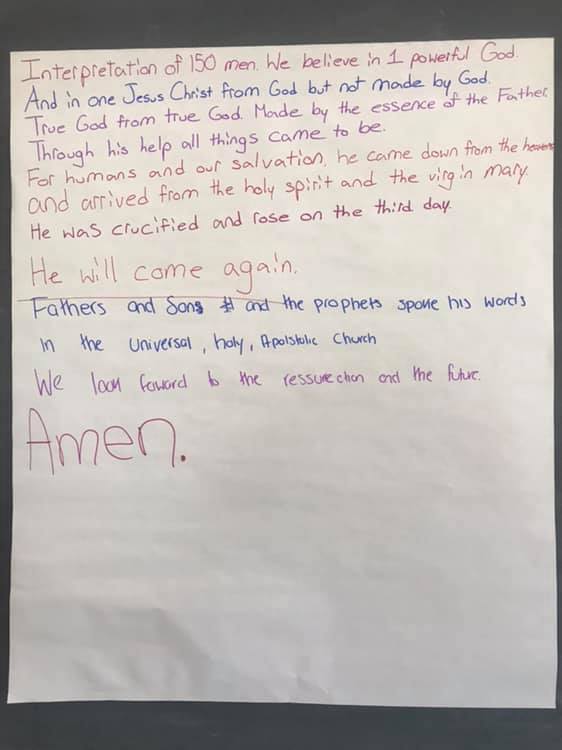 Interpretation of 150 men. We believe in 1 powerful God.
And in one Jesus Christ from God but not made by God.
True God from true God. Made by the essence of the Father.
Through his help all things came to be.
For humans and our salvation, he came down from the heavens
and arrived from the holy spirit and the virgin mary.
He was crucified and rose on the third day.
He will come again.
Fathers and Sons and the prophets spoke his words
In the Universal, holy, Apolstolic Church
We look foward to the ressurection and the future.
Amen.